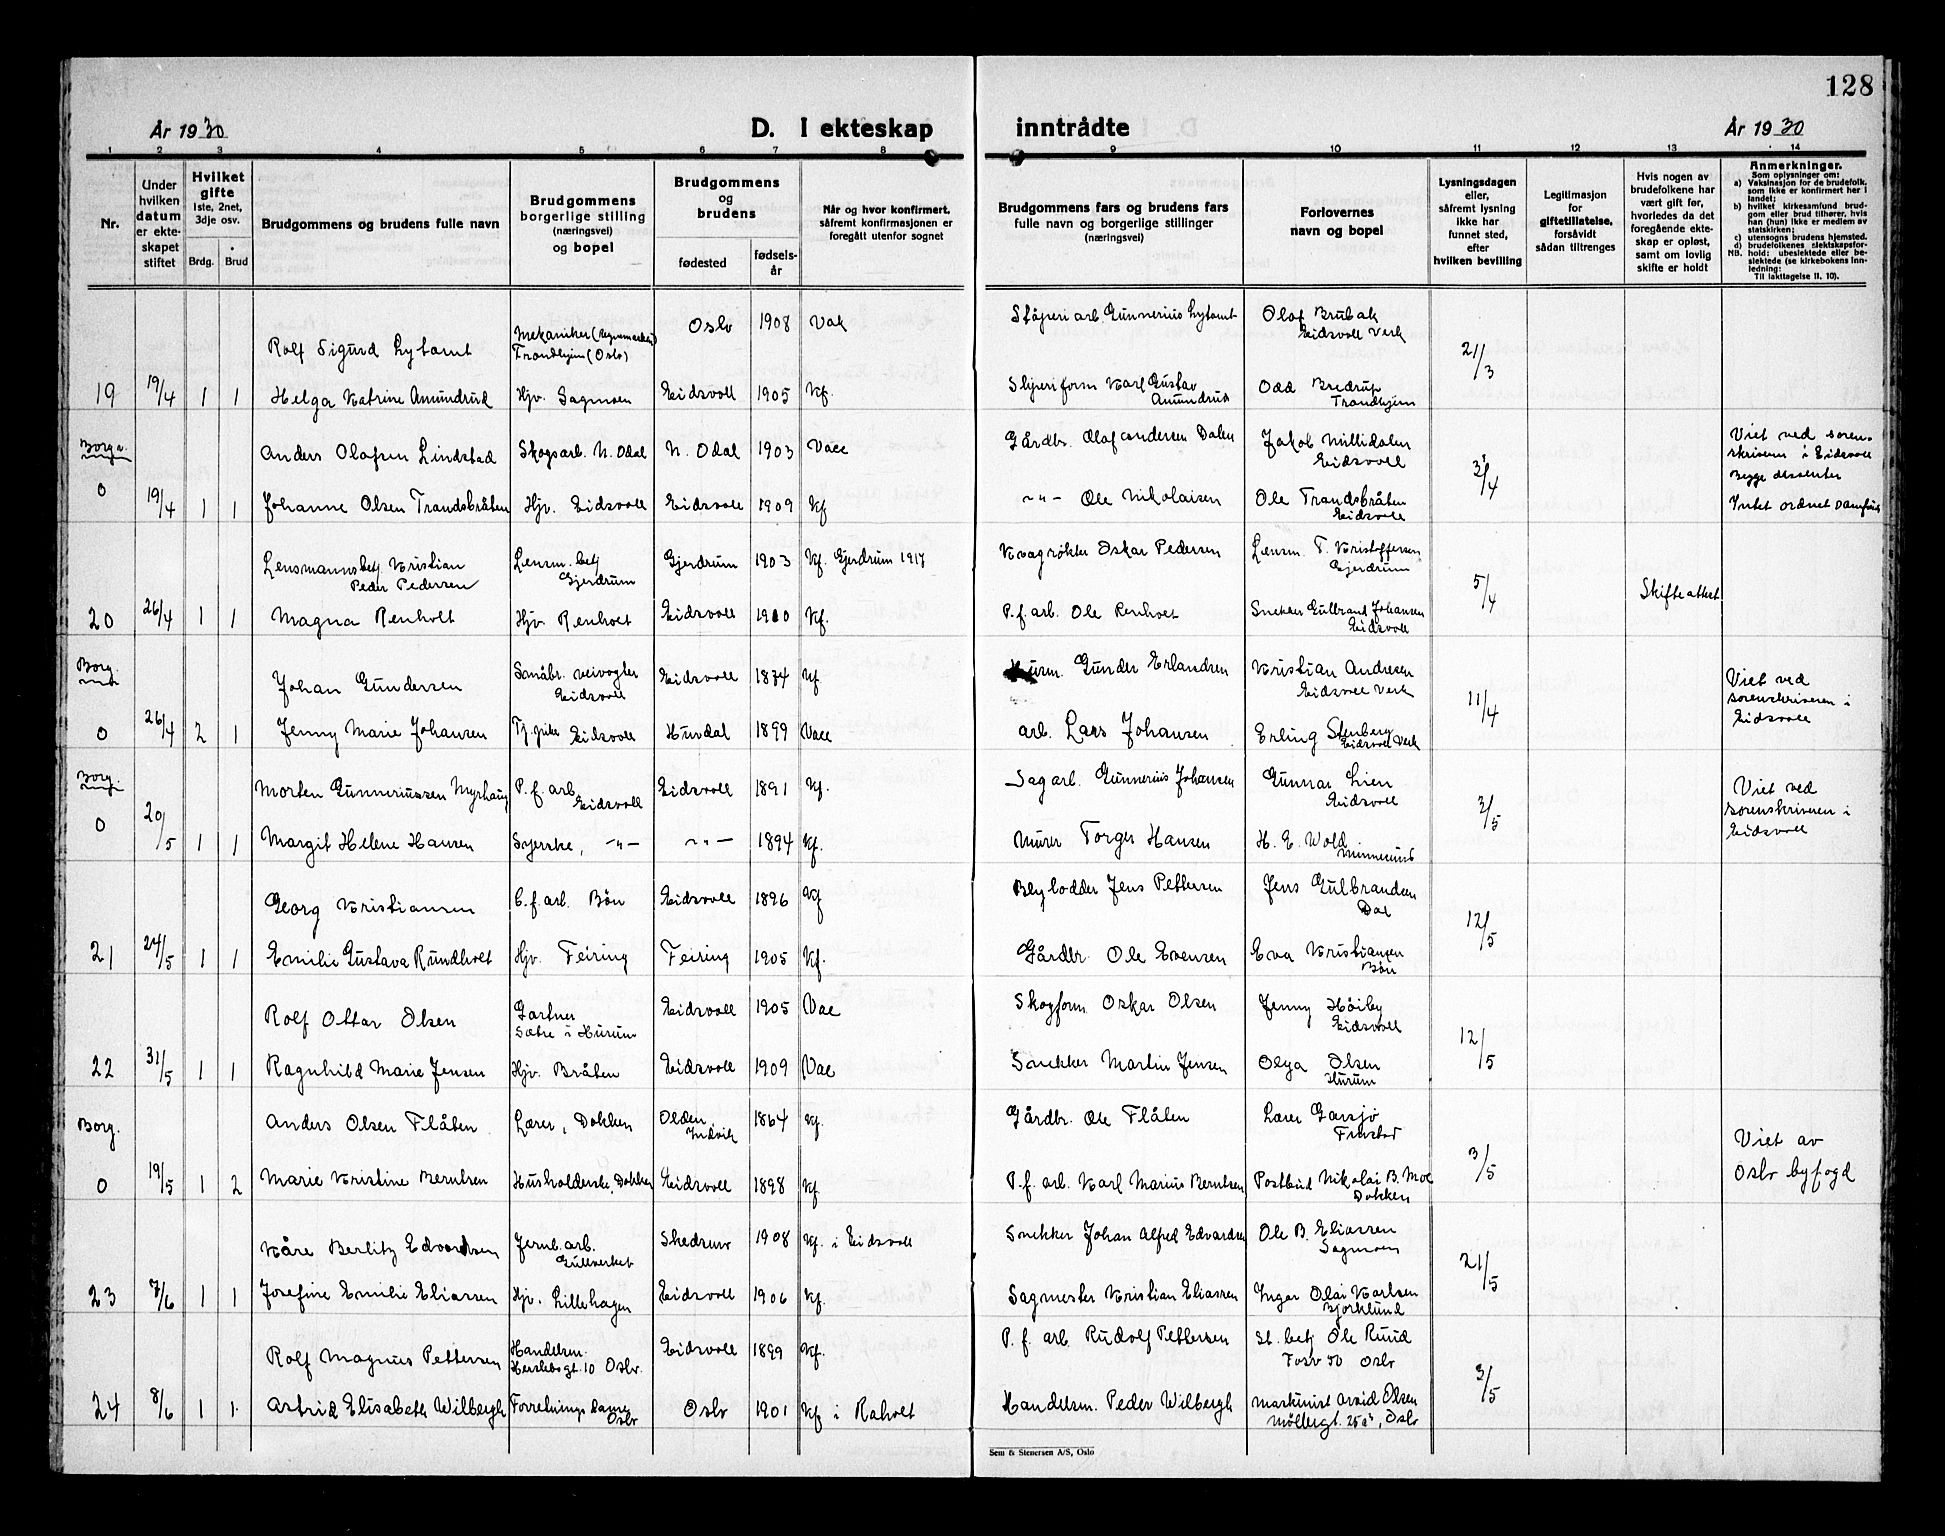 128
År 1930
D. I ekteskap inntrådte
År 1930
1 2 3 4 5 6 7 8 9 10 11 12 13 14
Nr.
Under hvilken datum er ekteskapet stiftet
Hvilket gifte
1ste, 2net, 3dje osv.
Brdg. Brud
Brudgommens og brudens fulle navn
Brudgommens borgerlige stilling (næringsvei) og bopel
Brudgommens og brudens
fødested
fødselsår
Når og hvor konfirmert, såfremt konfirmasjonen er foregått utenfor sognet
Brudgommens fars og brudens fars
fulle navn og borgerlige stillinger
(næringsvei)
Forlovernes navn og bopel
Lysningsdagen eller, såfremt lysning ikke har funnet sted, efter hvilken bevilling
Legitimasjon for giftetillatelse, forsåvidt sådan tiltrenges
Hvis nogen av brudefolkene har vært gift før, hvorledes da det foregående ekteskap er opløst, samt om lovlig skifte er holdt
Anmerkninger.
Som oplysninger om:
a) Vaksinasjon for de brudefolk, som ikke er konfirmert her i landet;
b) hvilket kirkesamfund brudgom eller brud tilhører, hvis han (hun) ikke er medlem av statskirken;
c) utensogns brudens hjemsted.
d) brudefolkenes slektskapsforhold: ubeslektede eller beslektede (se kirkebokens innledning:
NB. Til iakttagelse II, 10).
Rolf Sigurd Lytomt Mekaniker Trondhjem (Oslo) Oslo 1908 Vak Gunnerius Lytomt Olaf Brubak Eidsvoll Verk 21/3
19 19/4 1 1 Helga Katrine Amundrud Hjv. Sagmoen Eidsvoll 1905 Kf. Karl Gustav Amundrud Odd Bredrup Trondhjem
Borg. Anders Olafsen Lindstad Skogsarb. N. Odal N. Odal 1903 Vacc Gårdbr. Olaf Andersen Dalen Jakob Eidsvoll 3/4 Viet ved sorenskriveren i Eidsvoll Begge dissenter
0 19/4 1 1 Johanne Olsen Trandsbråten Hjv. Eidsvoll Eidsvoll 1909 Kf -"- Ole Nikolaisen Ole Trandsbråten Eidsvoll Intet ordnet
Lensmannsbetj Kristian Peder Pedersen Lensm. betj Gjerdrum Gjerdrum 1903 Kf. Gjerdrum 1917 Oskar Pedersen Lensm. T. Kristoffersen Gjerdrum 5/4 Skifteattest
20 26/4 1 1 Magna Renholt Hjv. Renholt Eidsvoll 1910 Kf. P.f. arb. Ole Renholt Snekker Gulbrand Johansen Eidsvoll
Borg. Johan Gundersen Småbr. veivogter Eidsvoll Eidsvoll 1874 Kf Husm. Gunder Erlandsen Kristian Andresen Eidsvoll Verk 11/4 Viet ved sorenskriveren i Eidsvoll
0 26/4 2 1 Jenny Marie Johansen Tj. pike Eidsvoll Hurdal 1899 Vacc arb. Lars Johansen Erling Stenberg Eidsvoll Verk
Borg. Morten Gunneriussen Myrhaug P.f. arb. Eidsvoll Eidsvoll 1891 Kf. Sagarb. Gunnerius Johansen Gunnar Lien Eidsvoll 3/5 Viet ved sorenskriveren i Eidsvoll
0 20/5 1 1 Margit Helene Hansen Syerske, -"- -"- 1894 Kf. Murer Torger Hansen H. E. Wold Minnesund
Georg Kristiansen C.f. arb. Bøn Eidsvoll 1896 Kf Jens Pettersen Jens Gulbrandsen Dal 12/5
21 24/5 1 1 Emilie Gustava Rundholt Hjv. Feiring Feiring 1905 Kf. Gårdbr. Ole Evensen Eva Kristiansen Bøn
Rolf Ottar Olsen Gartner Sætre i Hurum Eidsvoll 1905 Vac Skogform. Oskar Olsen Jenny Høiby Eidsvoll 12/5
22 31/5 1 1 Ragnhild Marie Jensen Hjv. Bråten Eidsvoll 1909 Vac Snekker Martin Jensen Olga Olsen Hurum
Borg. Anders Olsen Flåten Lærer, Dokken Olden, Indvik 1864 Kf. Gårdbr. Ole Flåten Lærer Garsjø Finstad 3/5 Viet av Oslo byfogd
0 19/5 1 2 Marie Kristine Berntsen Husholderske, Dokken Eidsvoll 1898 Kf P.f. arb. Karl Marius Berntsen Postbud Nikolai B. Moe Dokken
Kåre Berlitz Edvardsen Jernb. arb. Gullverket Skedsmo 1908 Kf. i Eidsvoll Snekker Johan Alfred Edvardsen Ole B. Eliassen Sagmoen 21/5
23 7/6 1 1 Josefine Emilie Eliassen Hjv. Lillehagen Eidsvoll 1906 Kf. Sagmester Kristian Eliassen Inger Olai Karlsen Bjørklund
Rolf Magnus Pettersen Handelsm. Herslebsgt. 10 Oslo. Eidsvoll 1899 Kf. P.f. arb. Rudolf Pettersen St. betj Ole Ruud Oslo 3/5
24 8/6 1 1 Astrid Elisabeth Wilbergh Forretningsdame Oslo Oslo 1901 Kf i Raholt Handelsm. Peder Wilbergh Maskinist Arvid Olsen Møllergt. Oslo
Sem & Stenersen A/S, Oslo